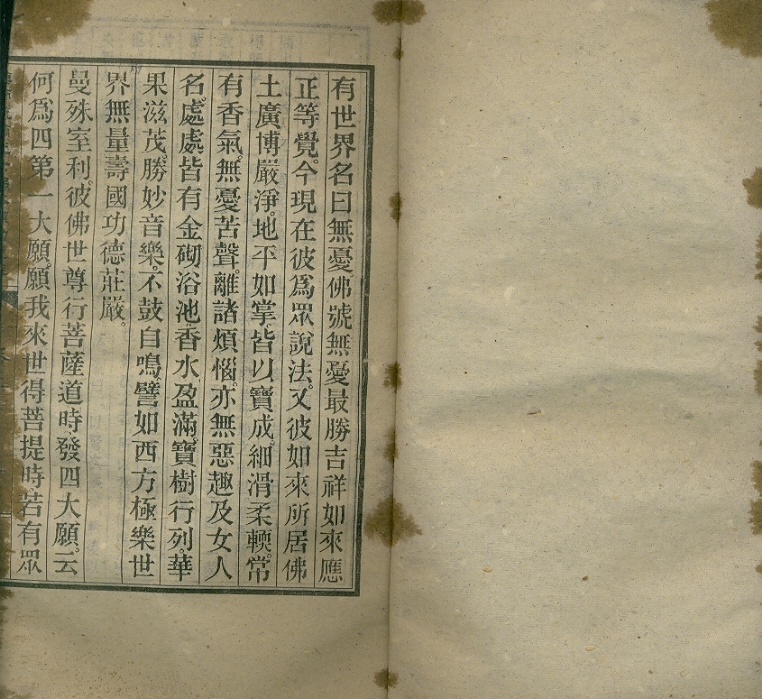 有世界名曰無憂佛號無憂最勝吉祥如來應
正等覺。今現在彼爲眾說法。又彼如來所居佛
土廣博嚴淨。地平如掌。皆以寶成。細滑柔輭。常
有香氣。無憂苦聲。離諸煩惱。亦無惡趣及女人
名。處處皆有金砌浴池。香水盈滿。寶樹行列。華
果滋茂。勝妙音樂。不鼓自鳴。譬如西方極樂世
界無量壽國功德莊嚴。
曼殊室利。彼佛世尊行菩薩道時。發四大願。云
何爲四。第一大願。願我來世得菩提時。若有眾